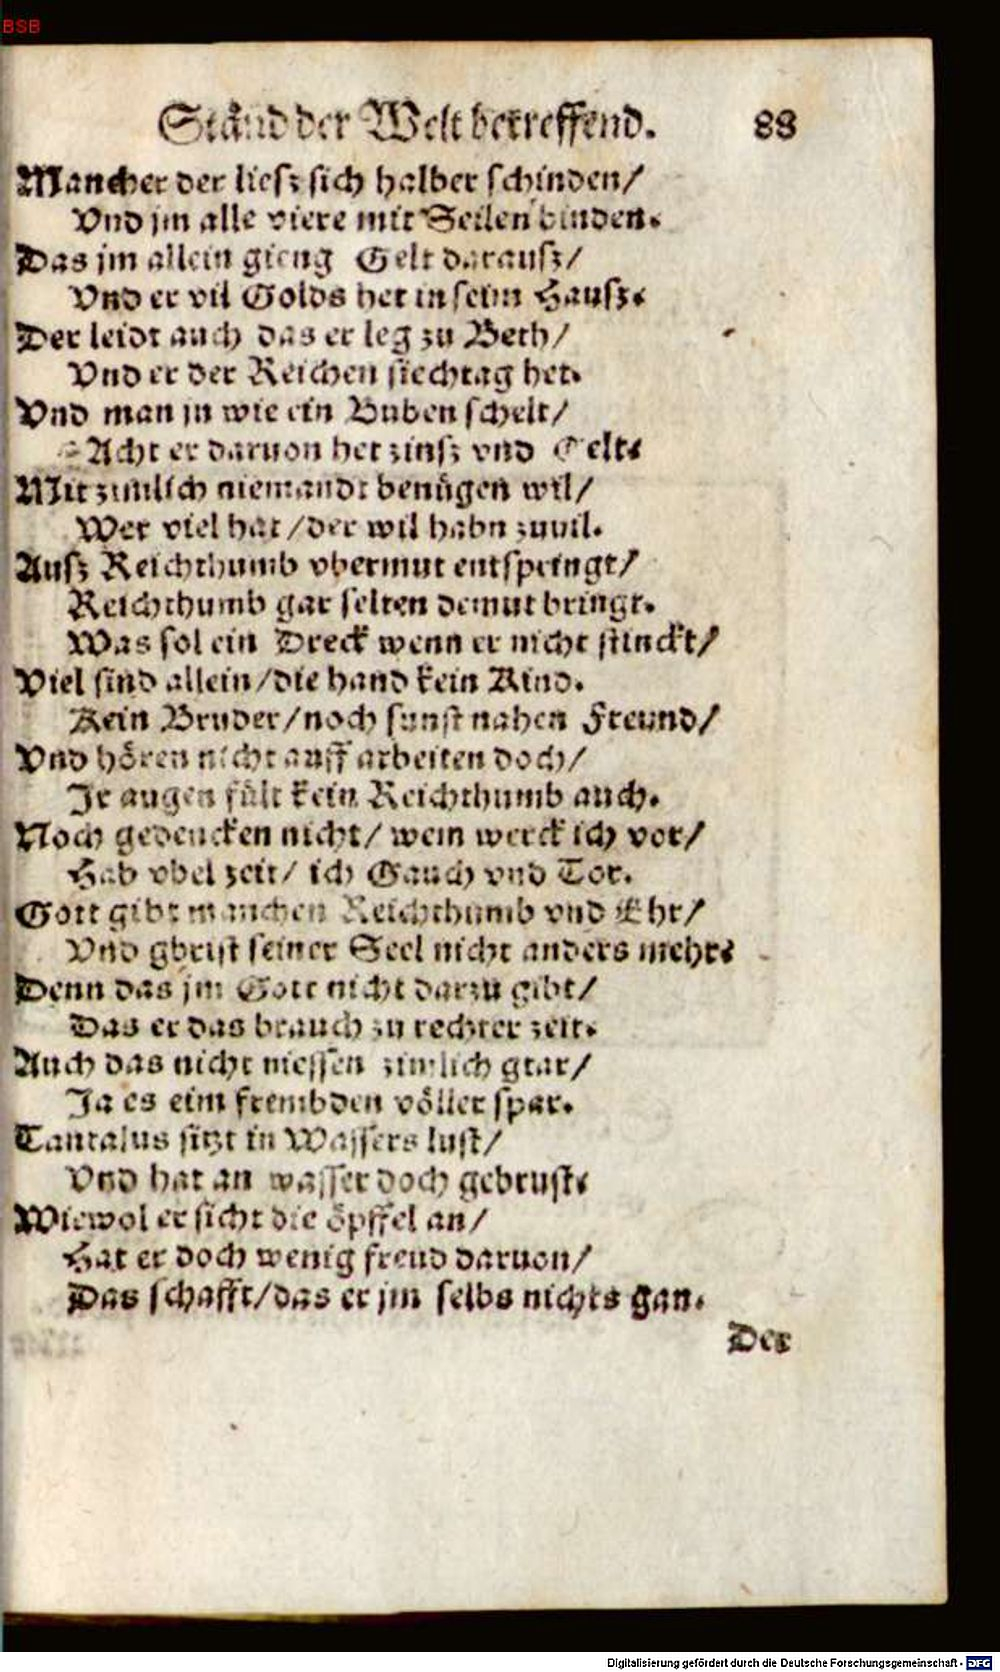 BSB
Ständ der Welt betreffend. 88
Mancher der liesz sich halber schinden/
Vnd jm alle viere mit Seilen binden.
Das jm allein gieng Gelt darausz/
Vnd er vil Golds het in seim Hausz.
Der leidt auch das er leg zu Beth/
Vnd er der Reichen siechtag het.
Vnd man jn wie ein Buben schelt/
Acht er daruon het zinsz vnd Gelt.
Mit zimlich niemandt benügen wil/
Wer viel hat/der wil habn zuuil.
Ausz Reichthumb vbermut entspringt/
Reichthumb gar selten demut bringt.
Was sol ein Dreck wenn er nicht stinckt/
Viel sind allein/die hand kein Kind.
Kein Bruder/noch sunst nahen Freund/
Vnd hören nicht auff arbeiten doch/
Jr augen fült kein Reichthumb auch.
Noch gedencken nicht/ wem werck ich vor/
Hab vbel zeit/ ich Gauch vnd Tor.
Gott gibt manchen Reichthumb vnd Ehr/
Vnd gbrist seiner Seel nicht anders mehr.
Denn das jm Gott nicht darzu gibt/
Das er das brauch zu rechter zeit.
Auch das nicht niessen zimlich gtar/
Ja es eim frembden völler spar.
Tantalus sitzt in Wassers lust/
Vnd hat an wasser doch gebrust.
Wiewol er sicht die öpffel an/
Hat er doch wenig freud daruon/
Das schafft/das er jm selbs nichts gan.
Der
Digitalisierung gefördert durch die Deutsche Forschungsgemeinschaft - DFG